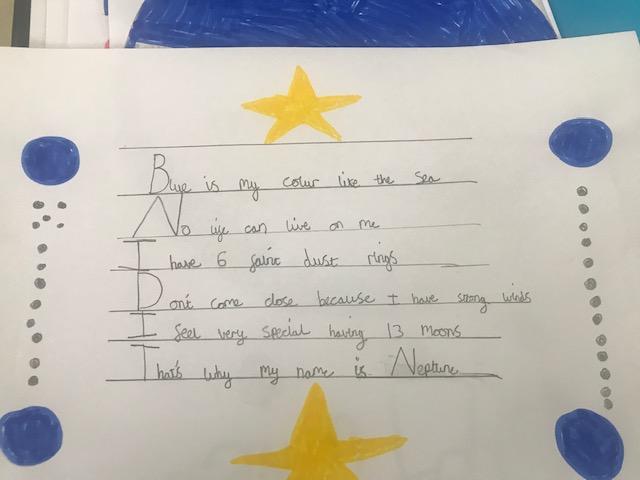 Blue is my colur like the sea
No life can live on me
I have 6 faint dust rings
Don't come close because I have strong winds
I feel very special having 13 moons
That's why my name is Neptune